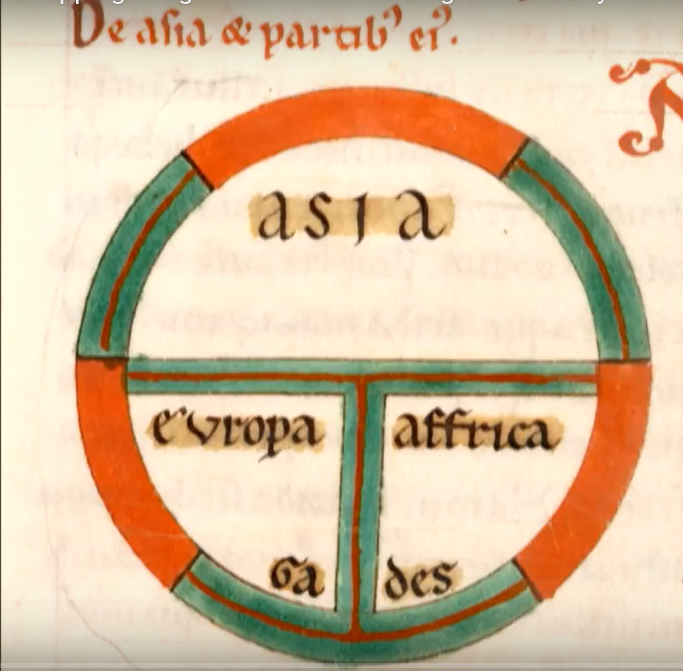 De asia & partib⁹ ei⁹.
asia
europa affrica
Ga des